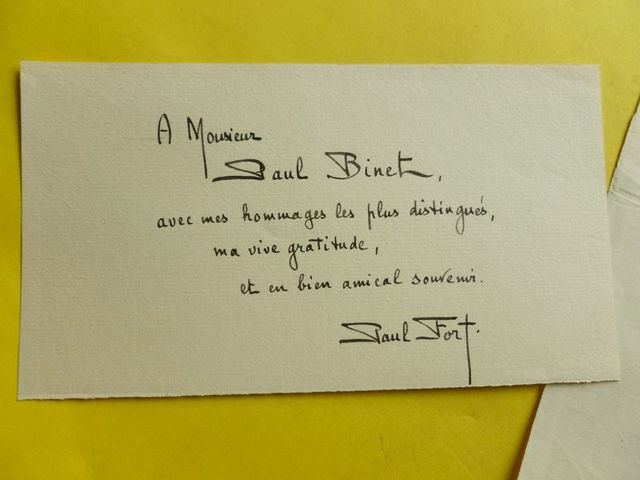 A Monsieur
Paul Binet,
avec mes hommages les plus distingués,
ma vive gratitude,
et en bien amical souvenir.
Paul Fort.